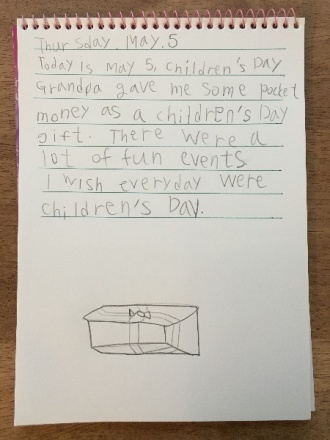 Thursday. May. 5
Today is May 5, children's Day
Grandpa gave me some pocket
money as a children's Day
gift. There were a
lot of fun events
I wish everyday were
children's Day.